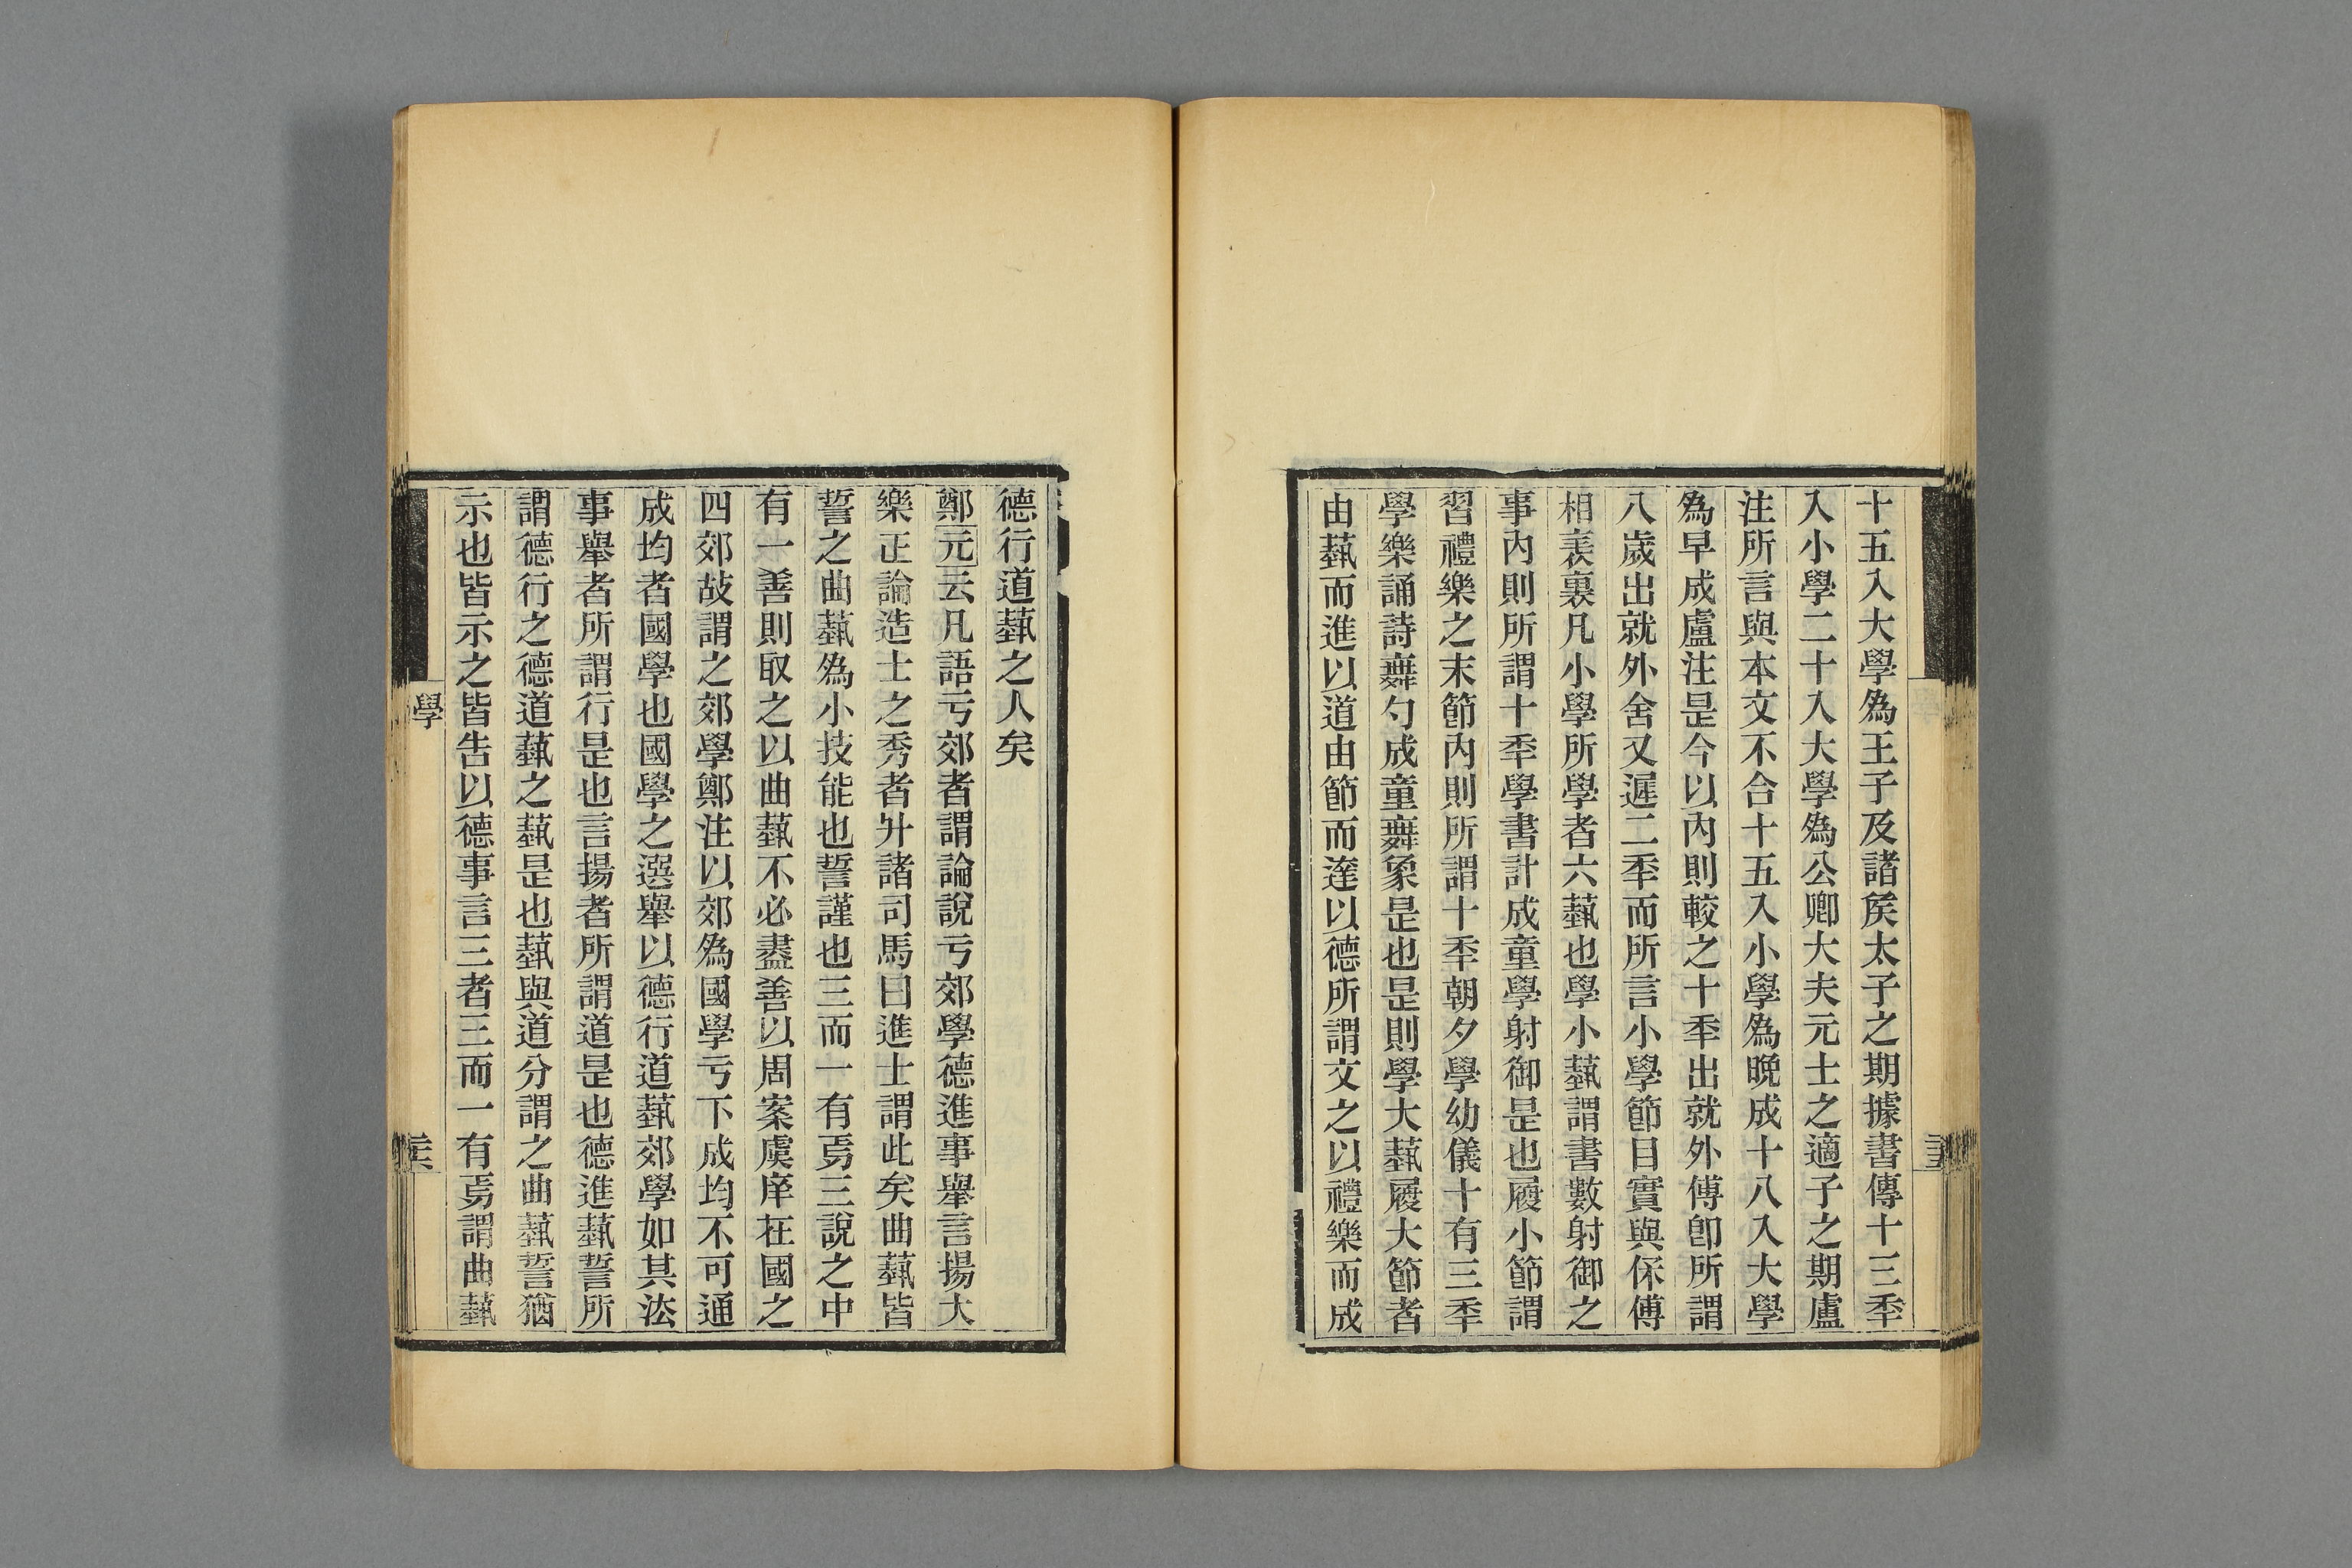 十五入大學為王子及諸矦太子之期據書傳十三秊
入小學二十入大學為公卿大夫元士之適子之期盧
注所言與本文不合十五入小學為晚成十八入大學
為早成盧注是今以內則較之十秊出就外傅卽所謂
八歲出就外舍又遲二秊而所言小學節目實與保傅
相表裏凡小學所學者六蓺也學小蓺謂書數射御之
事內則所謂十秊學書計成童學射御是也履小節謂
習禮樂之末節內則所謂十秊朝夕學幼儀十有三秊
學樂誦詩舞勺成童舞象是也是則學大蓺履大節者
由蓺而進以道由節而達以德所謂文之以禮樂而成
德行道蓺之人矣
鄭元云凡語亏郊者謂論說亏郊學德進事舉言揚大
樂正論造士之秀者升諸司馬曰進士謂此矣曲蓺皆
誓之曲蓺為小技能也誓謹也三而一有焉三說之中
有一善則取之以曲蓺不必盡善以周案虞庠在國之
四郊故謂之郊學鄭注以郊為國學亏下成均不可通
成均者國學也國學之選舉以德行道蓺郊學如其法
事舉者所謂行是也言揚者所謂道是也德進蓺誓所
謂德行之德道蓺之蓺是也蓺與道分謂之曲蓺誓猶
示也皆示之皆告以德事言三者三而一有焉謂曲蓺
學